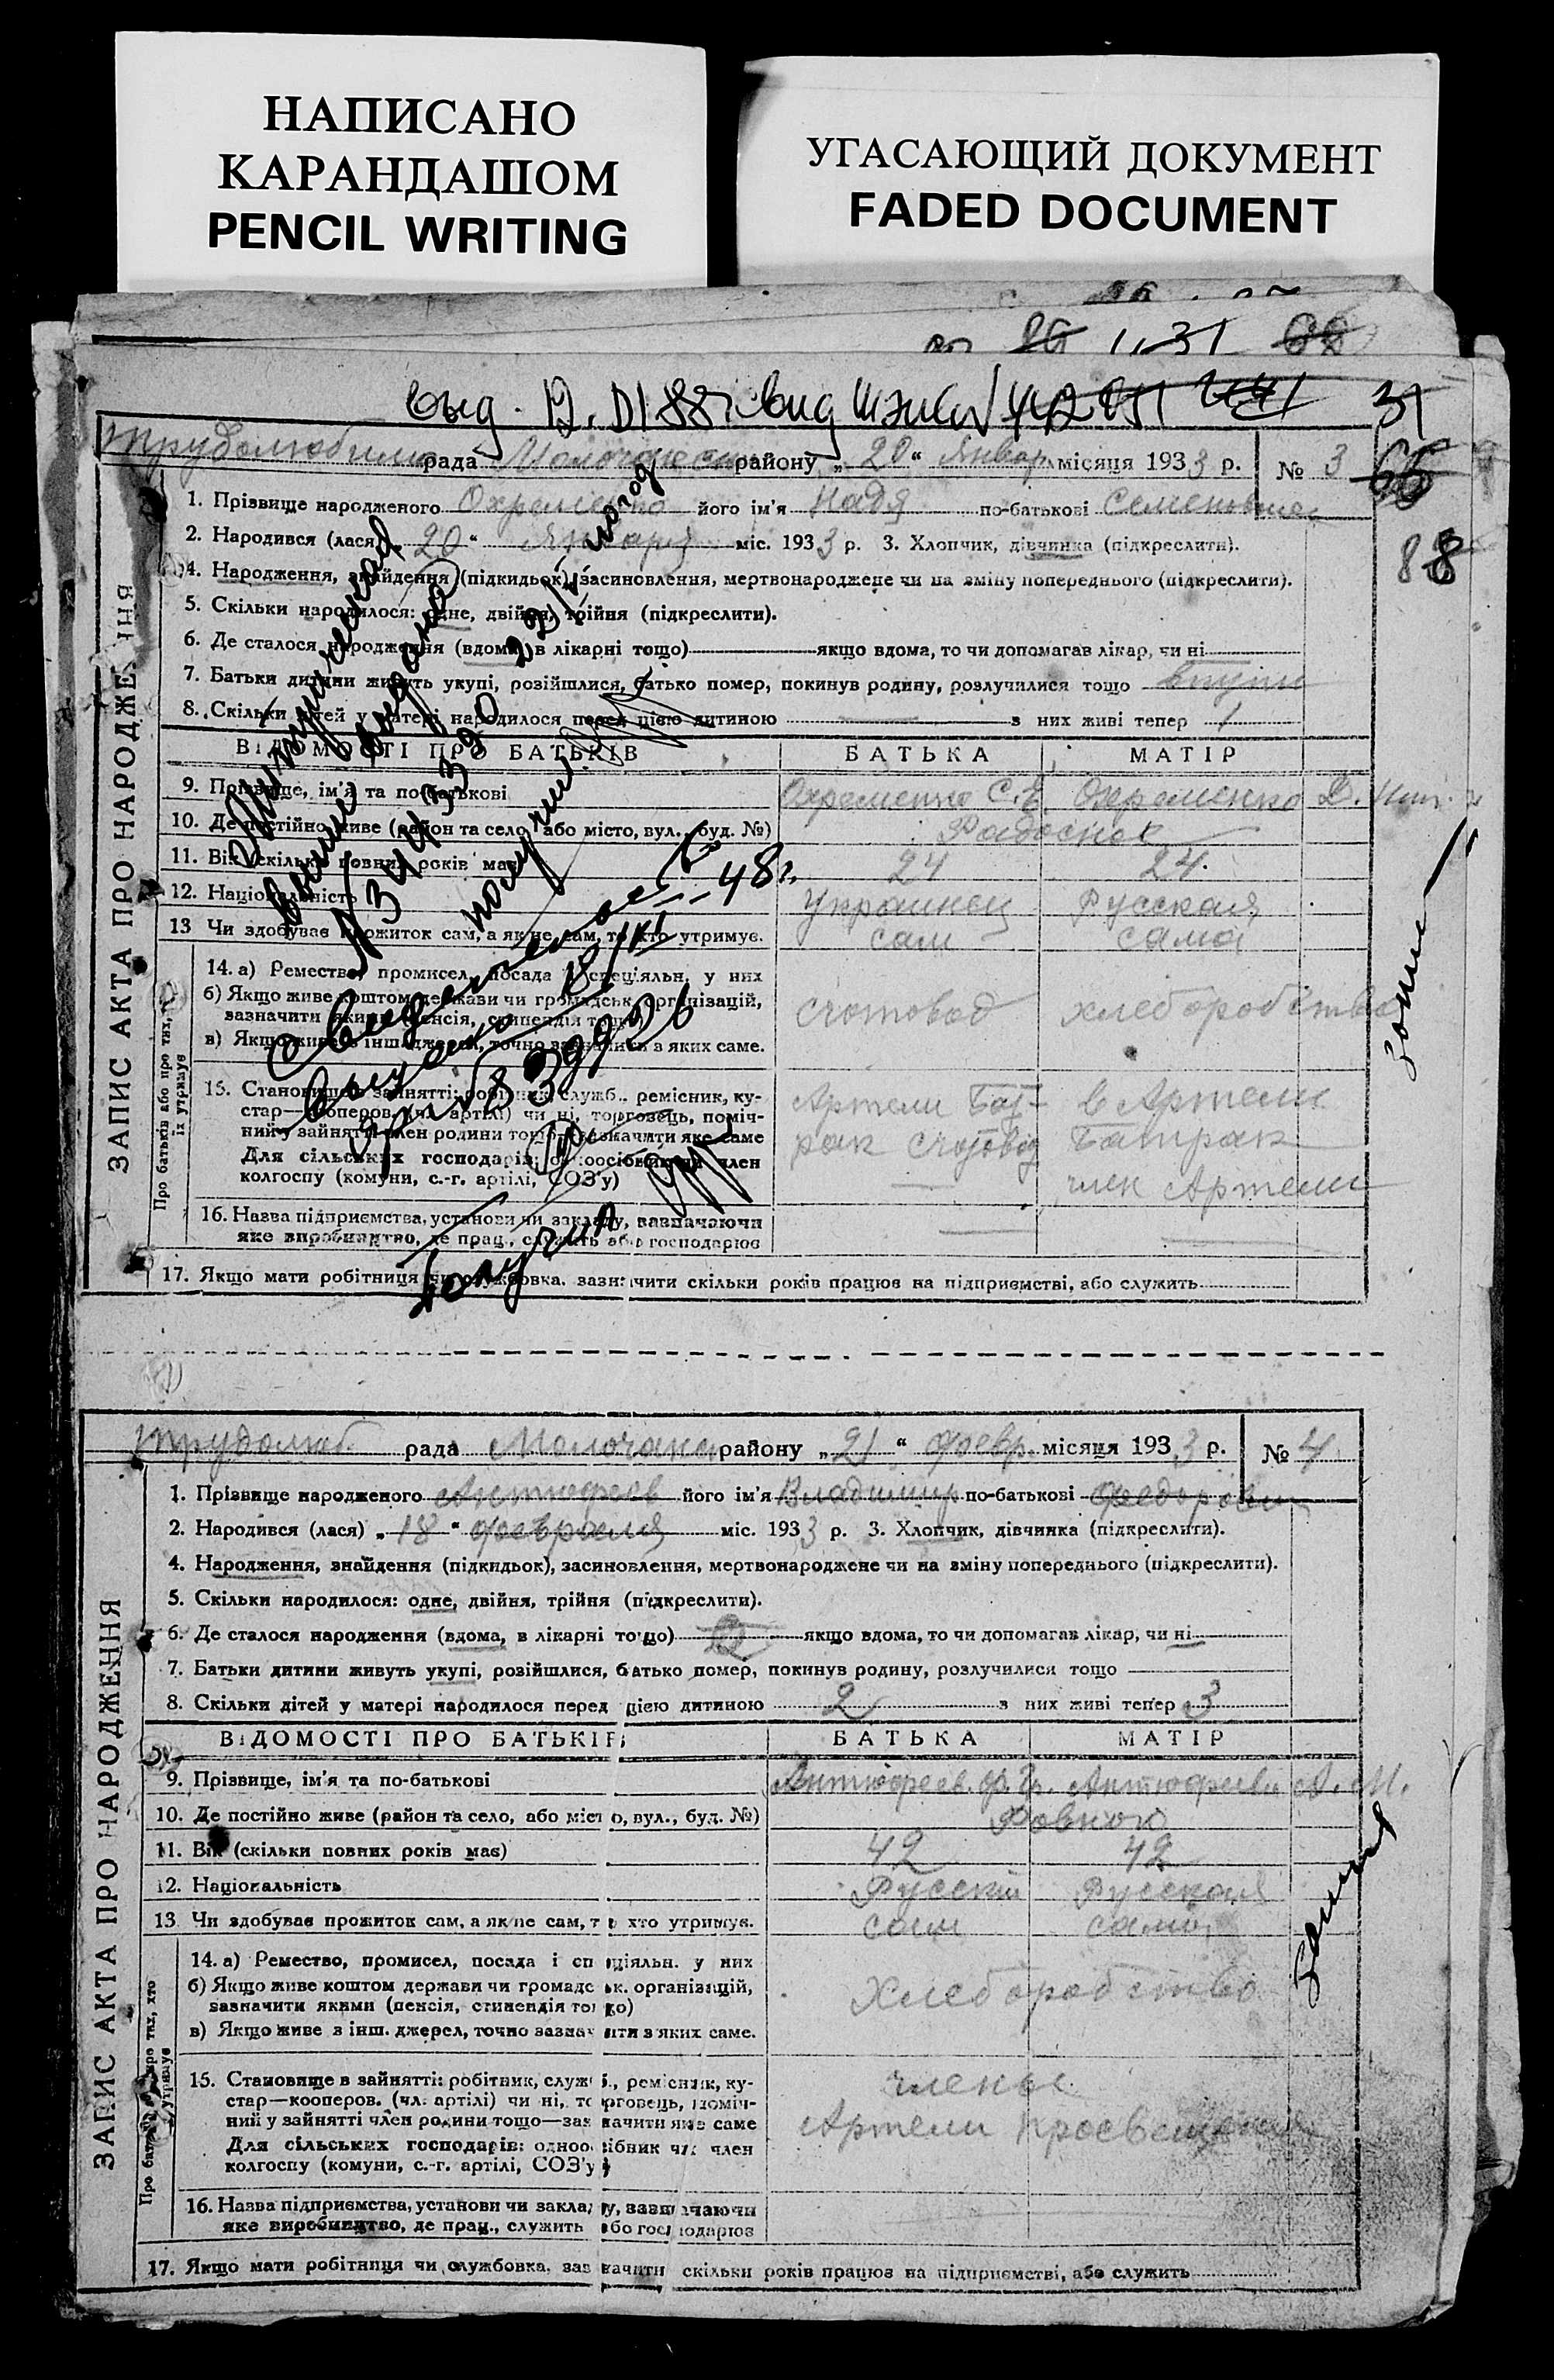 НАПИСАНО
КАРАНДАШОМ
PENCIL WRITING
УГАСАЮЩИЙ ДОКУМЕНТ
FADED DOCUMENT
31
рада району „20“ Январ місяця 1933 р. № 3
88
ЗАПИС АКТА ПРО НАРОДЖЕННЯ
1. Прізвище народженого Охременко його ім'я Надя по-батькові
2. Народився (лася) „20“ Января міс. 1933 р. 3. Хлопчик, дівчинка (підкреслити).
4. Народження, знайдення (підкидьок), засиновлення, мертвонароджене чи на зміну попереднього (підкреслити).
5. Скільки народилося: одне, двійня, трійня (підкреслити).
6. Де сталося народження (вдома, в лікарні тощо) якщо вдома, то чи допомагав лікар, чи ні
7. Батьки дитини живуть укупі, розійшлися, батько помер, покинув родину, розлучилися тощо вкупи
8. Скільки дітей у матері народилося перед цією дитиною — з них живі тепер 1
ВІДОМОСТІ ПРО БАТЬКІВ БАТЬКА МАТІР
9. Прізвище, ім'я та по-батькові Охременко С. Е. Охременко Д.
10. Де постійно живе (район та село, або місто, вул., буд. №)
11. Вік (скільки повних років має) 24 24.
12. Національність Украинец Русская
13 Чи здобуває прожиток сам, а як не сам, то хто утримує. сам сама
Про батьків або про тих, хто їх утримує
14. а) Ремество, промисел, посада і спеціяльн. у них
б) Якщо живе коштом держави чи громадськ. організацій,
зазначити якими (пенсія, стипендія тощо) счотовод хлеборобство
в) Якщо живе з інш. джерел, точно зазначити з яких саме.
15. Становище в зайнятті: робітник, служб., ремісник, ку-
стар—кооперов. (чл. артілі) чи ні, торговець, поміч- Артели Бат- в Артели
ний у зайнятті член родини тощо—зазначити яке саме рак счотовод Батрак
Для сільських господарів: одноосібник чи член
колгоспу (комуни, с.-г. артілі, СОЗ'у) — член Артели
16. Назва підприємства, установи чи закладу, зазначаючи
яке виробництво, де прац., служить або господарює
17. Якщо мати робітниця чи службовка, зазначити скільки років працює на підприємстві, або служить
Свидетельство
48 г.
Получил
трудолюб. рада Молочанск району „21“ февр. місяця 1933 р. № 4
ЗАПИС АКТА ПРО НАРОДЖЕННЯ
1. Прізвище народженого Антюфеев його ім'я Владимир по-батькові Федорович
2. Народився (лася) „18“ февраля міс. 1933 р. 3. Хлопчик, дівчинка (підкреслити).
4. Народження, знайдення (підкидьок), засиновлення, мертвонароджене чи на зміну попереднього (підкреслити).
5. Скільки народилося: одне, двійня, трійня (підкреслити).
6. Де сталося народження (вдома, в лікарні тощо) якщо вдома, то чи допомагав лікар, чи ні
7. Батьки дитини живуть укупі, розійшлися, батько помер, покинув родину, розлучилися тощо
8. Скільки дітей у матері народилося перед цією дитиною 2 з них живі тепер 3
ВІДОМОСТІ ПРО БАТЬКІВ БАТЬКА МАТІР
9. Прізвище, ім'я та по-батькові Антюфеев. Ф. Гр. Антюфеева А. М.
10. Де постійно живе (район та село, або місто, вул., буд. №) Ровного
11. Вік (скільки повних років має) 42 42
12. Національність Русский Русская
13. Чи здобуває прожиток сам, а як не сам, то хто утримує. сам сама
Про батьків або про тих, хто їх утримує
14. а) Ремество, промисел, посада і спеціяльн. у них
б) Якщо живе коштом держави чи громадськ. організацій, Хлеборобство
зазначити якими (пенсія, стипендія тощо)
в) Якщо живе з інш. джерел, точно зазначити з яких саме.
15. Становище в зайнятті: робітник, служб., ремісник, ку- члены
стар—кооперов. (чл. артілі) чи ні, торговець, поміч-
ний у зайнятті член родини тощо—зазначити яке саме Артели Просвещения
Для сільських господарів: одноосібник чи член
колгоспу (комуни, с.-г. артілі, СОЗ'у)
16. Назва підприємства, установи чи закладу, зазначаючи
яке виробництво, де прац., служить або господарює
17. Якщо мати робітниця чи службовка, зазначити скільки років працює на підприємстві, або служить